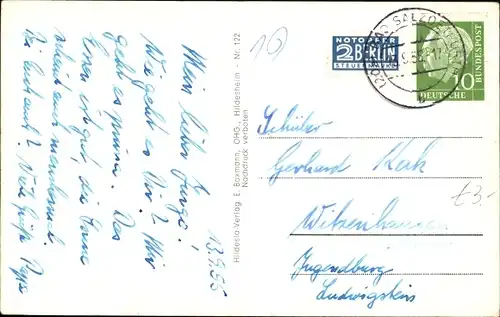 Mein lieber Junge!
Wie geht es Dir? Mir
geht es prima. Das
Essen ist gut, die Sonne
scheint auch manchmal.
Viele Grüße Pappi
13.9.55
Hildesia-Verlag E. Boxmann, OHG., Hildesheim - Nr. 122
Nachdruck verboten
10
NOTOPFER
2 BERLIN
STEUERMARKE
BAD SALZDETFURTH
10
DEUTSCHE
BUNDESPOST
Schüler
Gerhard Keck
Witzenhausen
Jugendburg
Ludwigstein
£3-